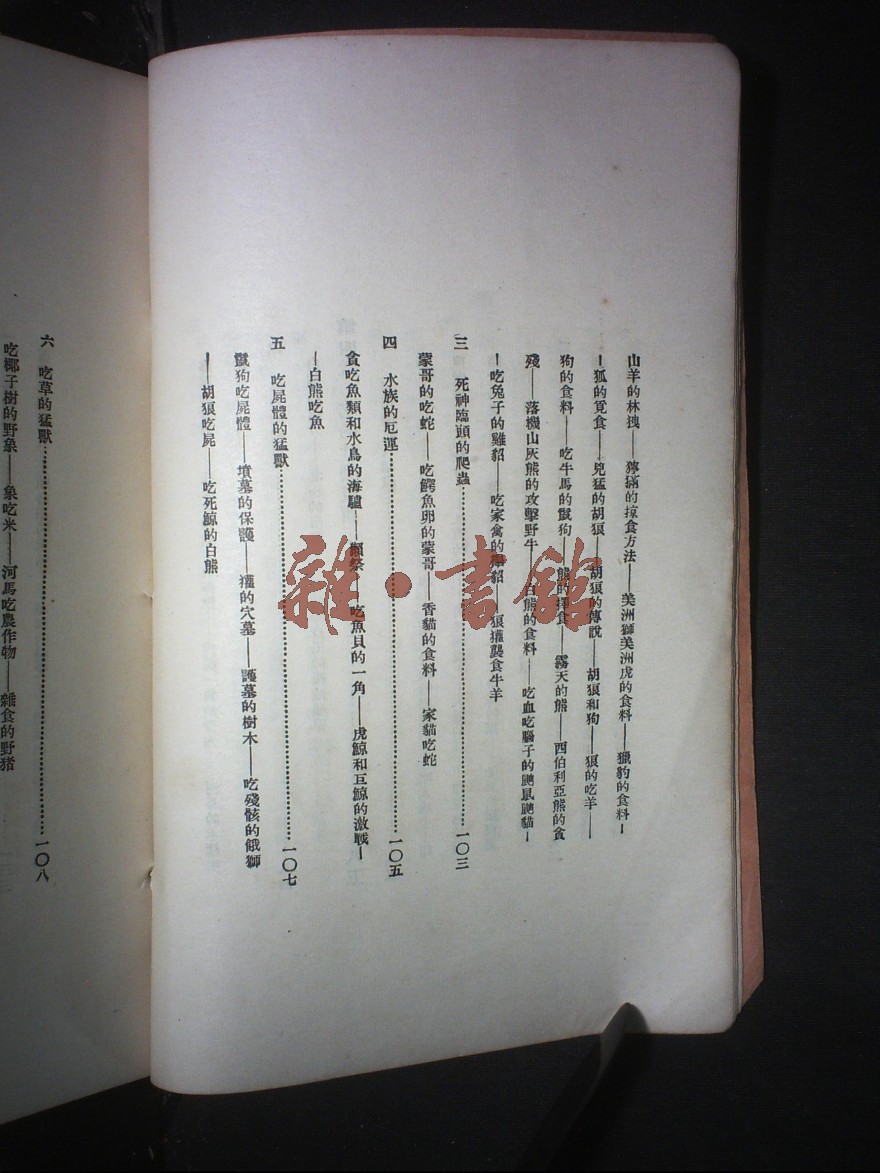 山羊的林拽——獰猫的掠食方法——美洲獅美洲虎的食料——獵豹的食料—
—狐的覓食——兇猛的胡狼——胡狼的傳說——胡狼和狗——狼的吃羊——
狗的食料——吃牛馬的鬣狗——熊的擇食——霧天的熊——西伯利亞熊的貪
殘——落機山灰熊的攻擊野牛——白熊的食料——吃血吃腦子的鼬鼠鼬貓—
—吃兔子的雞貂——吃家禽的 貂——狼獾襲食牛羊
三 死神臨頭的爬蟲 一〇三
蒙哥的吃蛇——吃鰐魚卵的蒙哥——香貓的食料——家貓吃蛇
四 水族的厄運 一〇五
貪吃魚類和水鳥的海驢——獺祭——吃魚貝的一角——虎鯨和巨鯨的激戰—
—白熊吃魚
五 吃屍體的猛獸 一〇七
鬣狗吃屍體——墳墓的保護——獾的穴墓——護墓的樹木——吃殘骸的餓獅
——胡狼吃屍——吃死鯨的白熊
六 吃草的猛獸 一〇八
吃椰子樹的野象——象吃米——河馬吃農作物——雜食的野猪
雜·書館